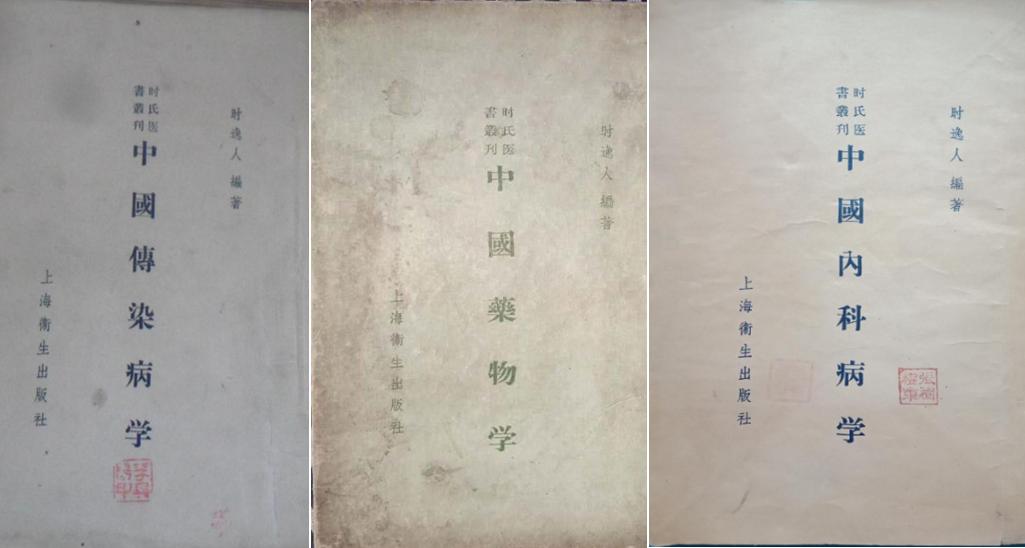 时逸人 編著
时氏医
書叢刊
中國傳染病学
上海衛生出版社
时逸人 編著
时氏医
書叢刊
中國藥物学
上海衛生出版社
时逸人 編著
时氏医
書叢刊
中國內科病学
上海衛生出版社